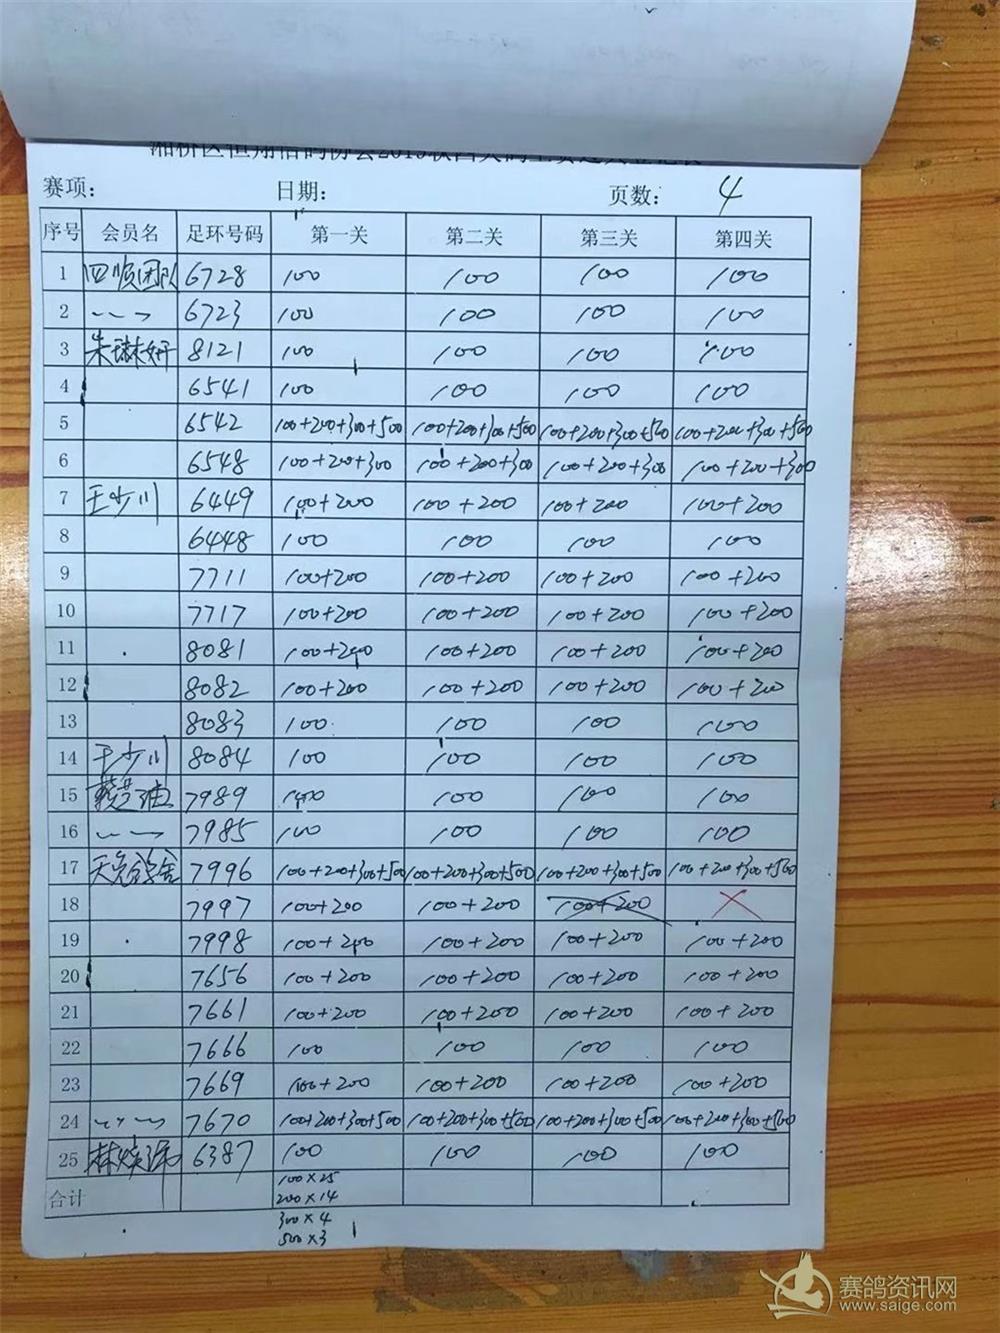 赛项： 日期： 页数： 4
序号 会员名 足环号码 第一关 第二关 第三关 第四关
1 四顺团队 6728 100 100 100 100
2 6723 100 100 100 100
3 朱琳妍 8121 100 100 100 100
4 6541 100 100 100 100
5 6542 100+200+300+500 100+200+300+500 100+200+300+500 100+200+300+500
6 6548 100+200+300 100+200+300 100+200+300 100+200+300
7 王少川 6449 100+200 100+200 100+200 100+200
8 6448 100 100 100 100
9 7711 100+200 100+200 100+200 100+200
10 7717 100+200 100+200 100+200 100+200
11 8081 100+200 100+200 100+200 100+200
12 8082 100+200 100+200 100+200 100+200
13 8083 100 100 100 100
14 王少川 8084 100 100 100 100
15 7989 100 100 100 100
16 7985 100 100 100 100
17 7996 100+200+300+500 100+200+300+500 100+200+300+500 100+200+300+500
18 7997 100+200 100+200 100+200 ×
19 7998 100+200 100+200 100+200 100+200
20 7656 100+200 100+200 100+200 100+200
21 7661 100+200 100+200 100+200 100+200
22 7666 100 100 100 100
23 7669 100+200 100+200 100+200 100+200
24 7670 100+200+300+500 100+200+300+500 100+200+300+500 100+200+300+500
25 6387 100 100 100 100
合计 100×25
200×14
300×4
500×3
赛鸽资讯网
www.saige.com